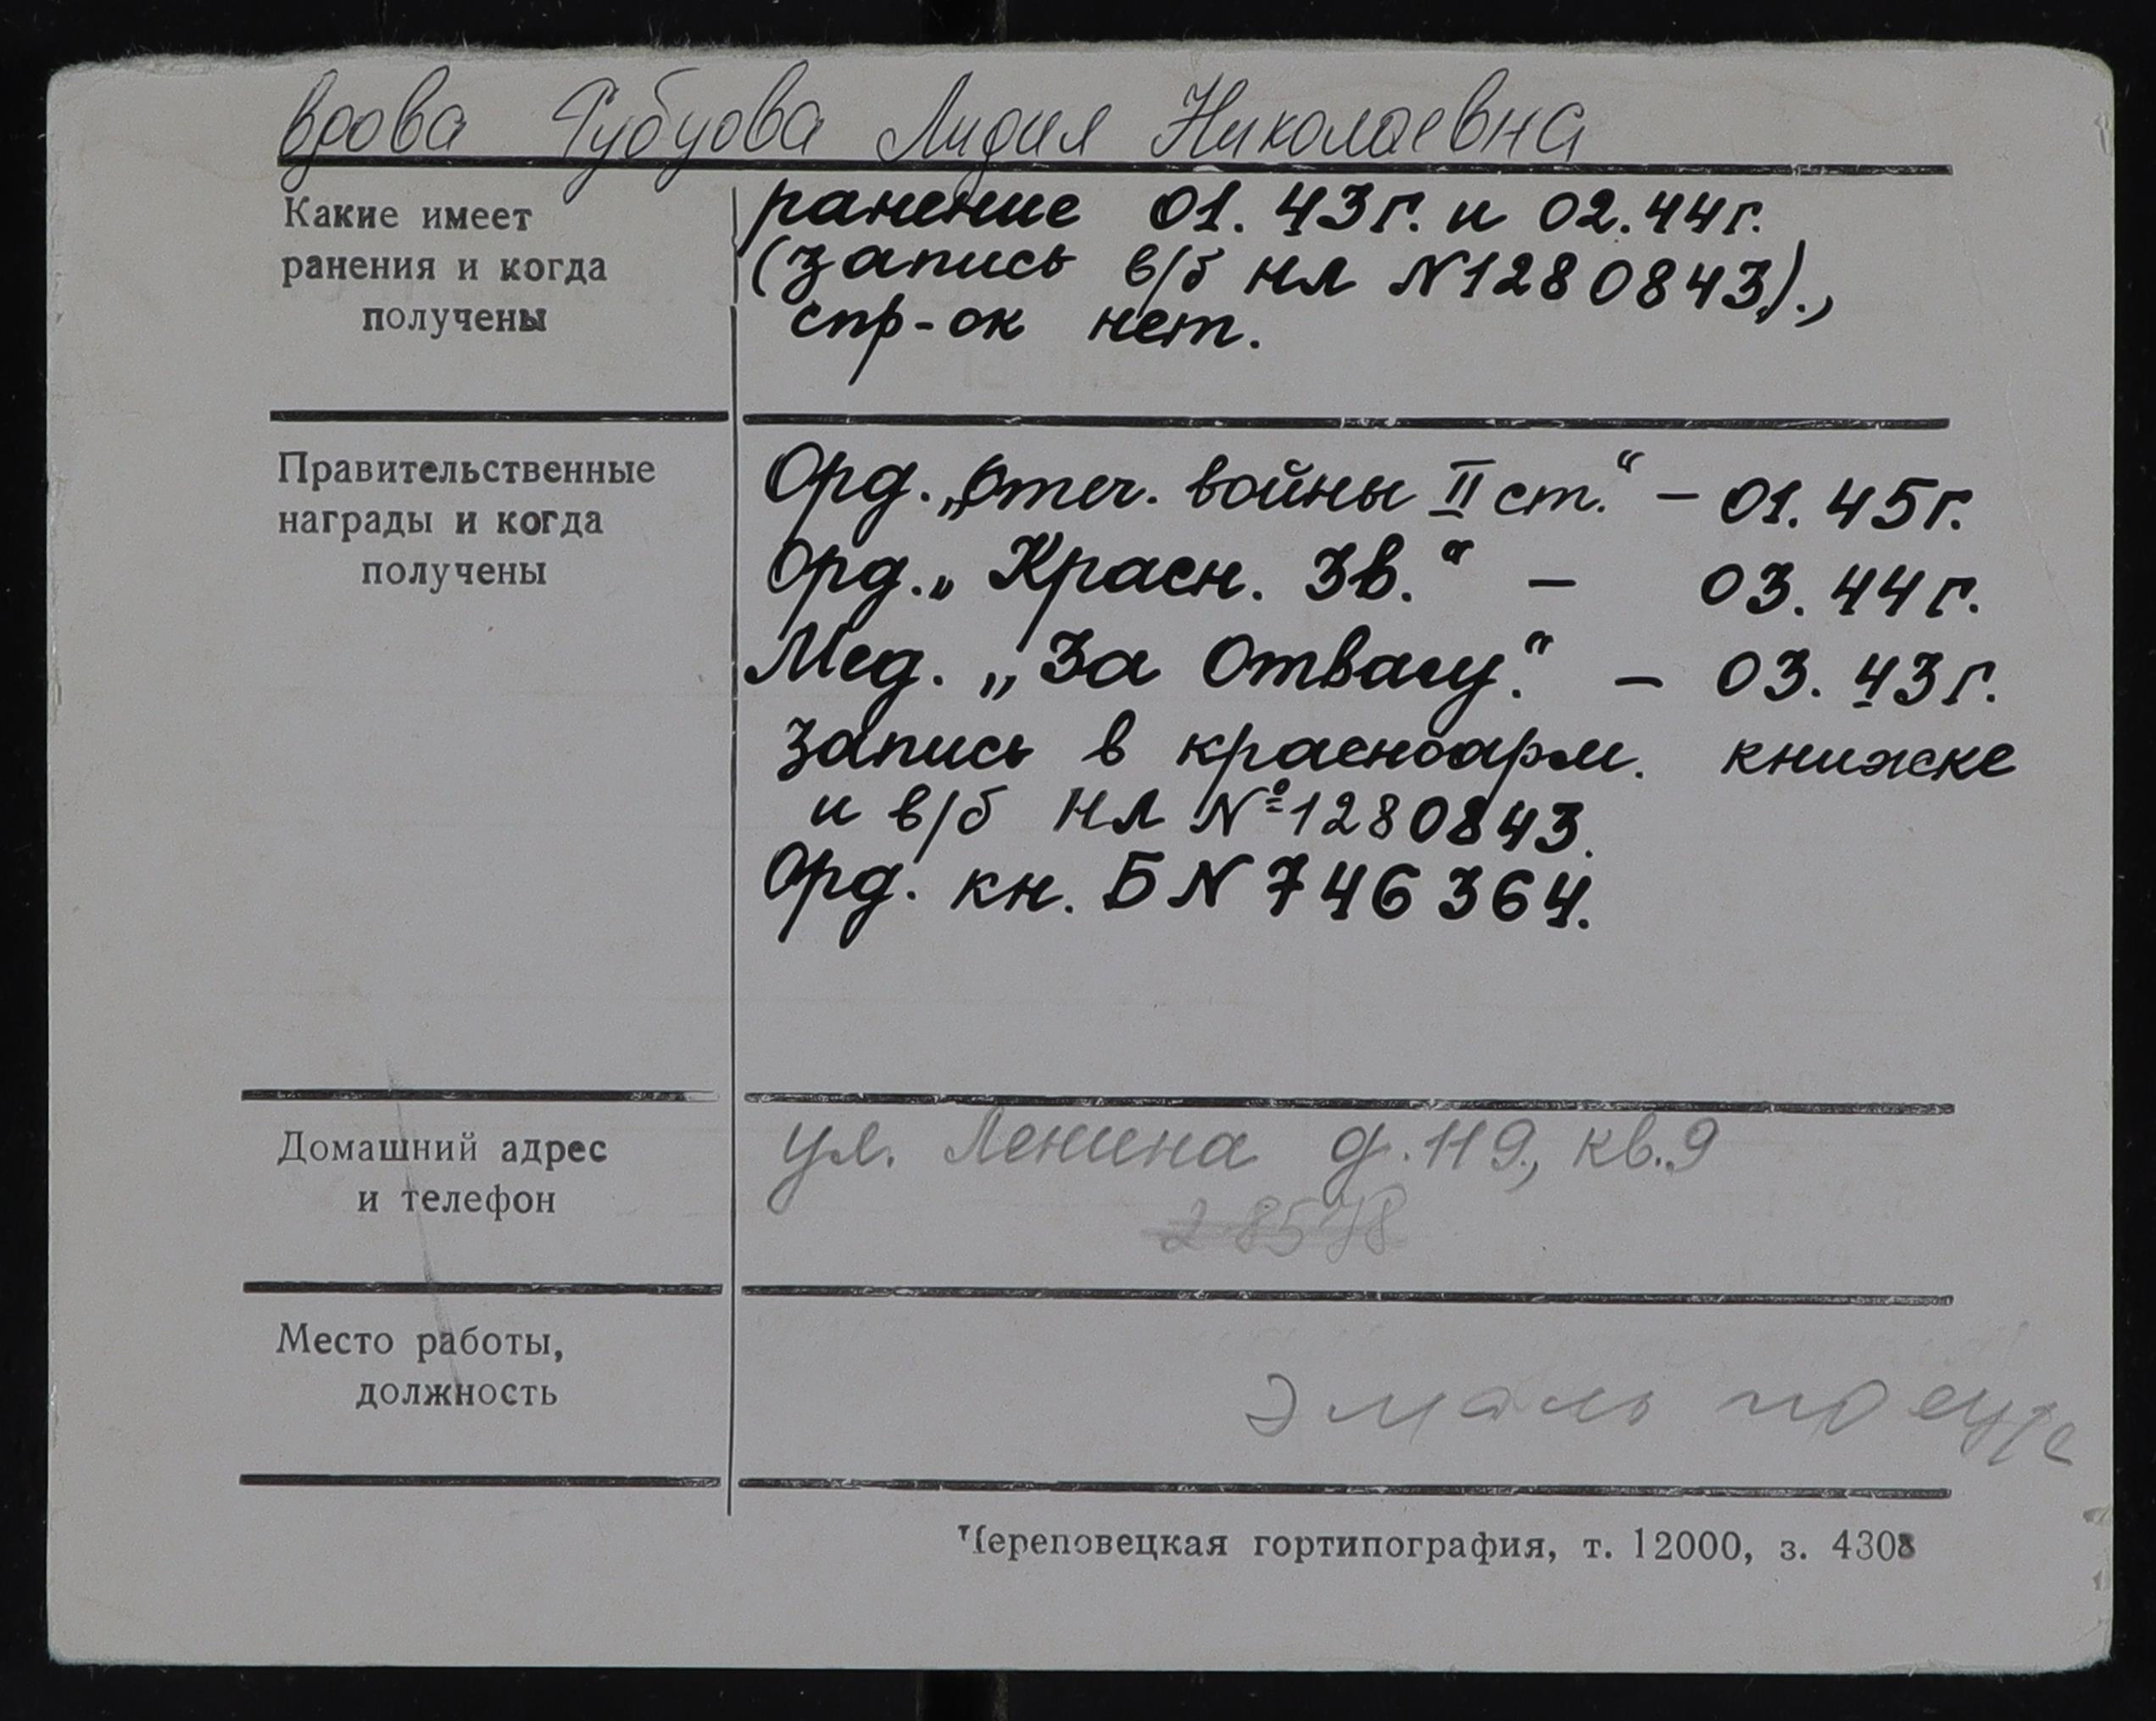 вдова Рубцова Лидия Николаевна
Какие имеет
ранения и когда
получены
ранение 01.43г. и 02.44г.
(запись в/б НЛ N1280843).,
спр-ок нет.
Правительственные
награды и когда
получены
Орд. „Отеч. войны II ст.“ – 01.45г.
Орд. „Красн. Зв.“ – 03.44г.
Мед. „За Отвагу.“ – 03.43г.
запись в красноарм. книжке
и в/б НЛ №1280843.
Орд. кн. Б N 746364.
Домашний адрес
и телефон
ул. Ленина д.119, кв.9
28578
Место работы,
должность
эмаль
Череповецкая гортипография, т. 12000, з. 4308